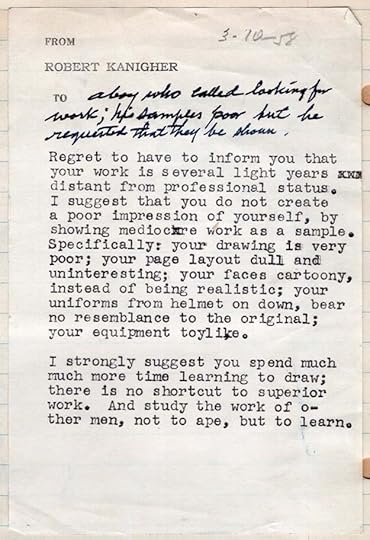 3-10-58
FROM
ROBERT KANIGHER
TO a boy who called looking for
work; his samples poor but he
requested that they be shown.
Regret to have to inform you that
your work is several light years xxx
distant from professional status.
I suggest that you do not create
a poor impression of yourself, by
showing mediocre work as a sample.
Specifically: your drawing is very
poor; your page layout dull and
uninteresting; your faces cartoony,
instead of being realistic; your
uniforms from helmet on down, bear
no resemblance to the original;
your equipment toylike.
I strongly suggest you spend much
much more time learning to draw;
there is no shortcut to superior
work. And study the work of o-
ther men, not to ape, but to learn.